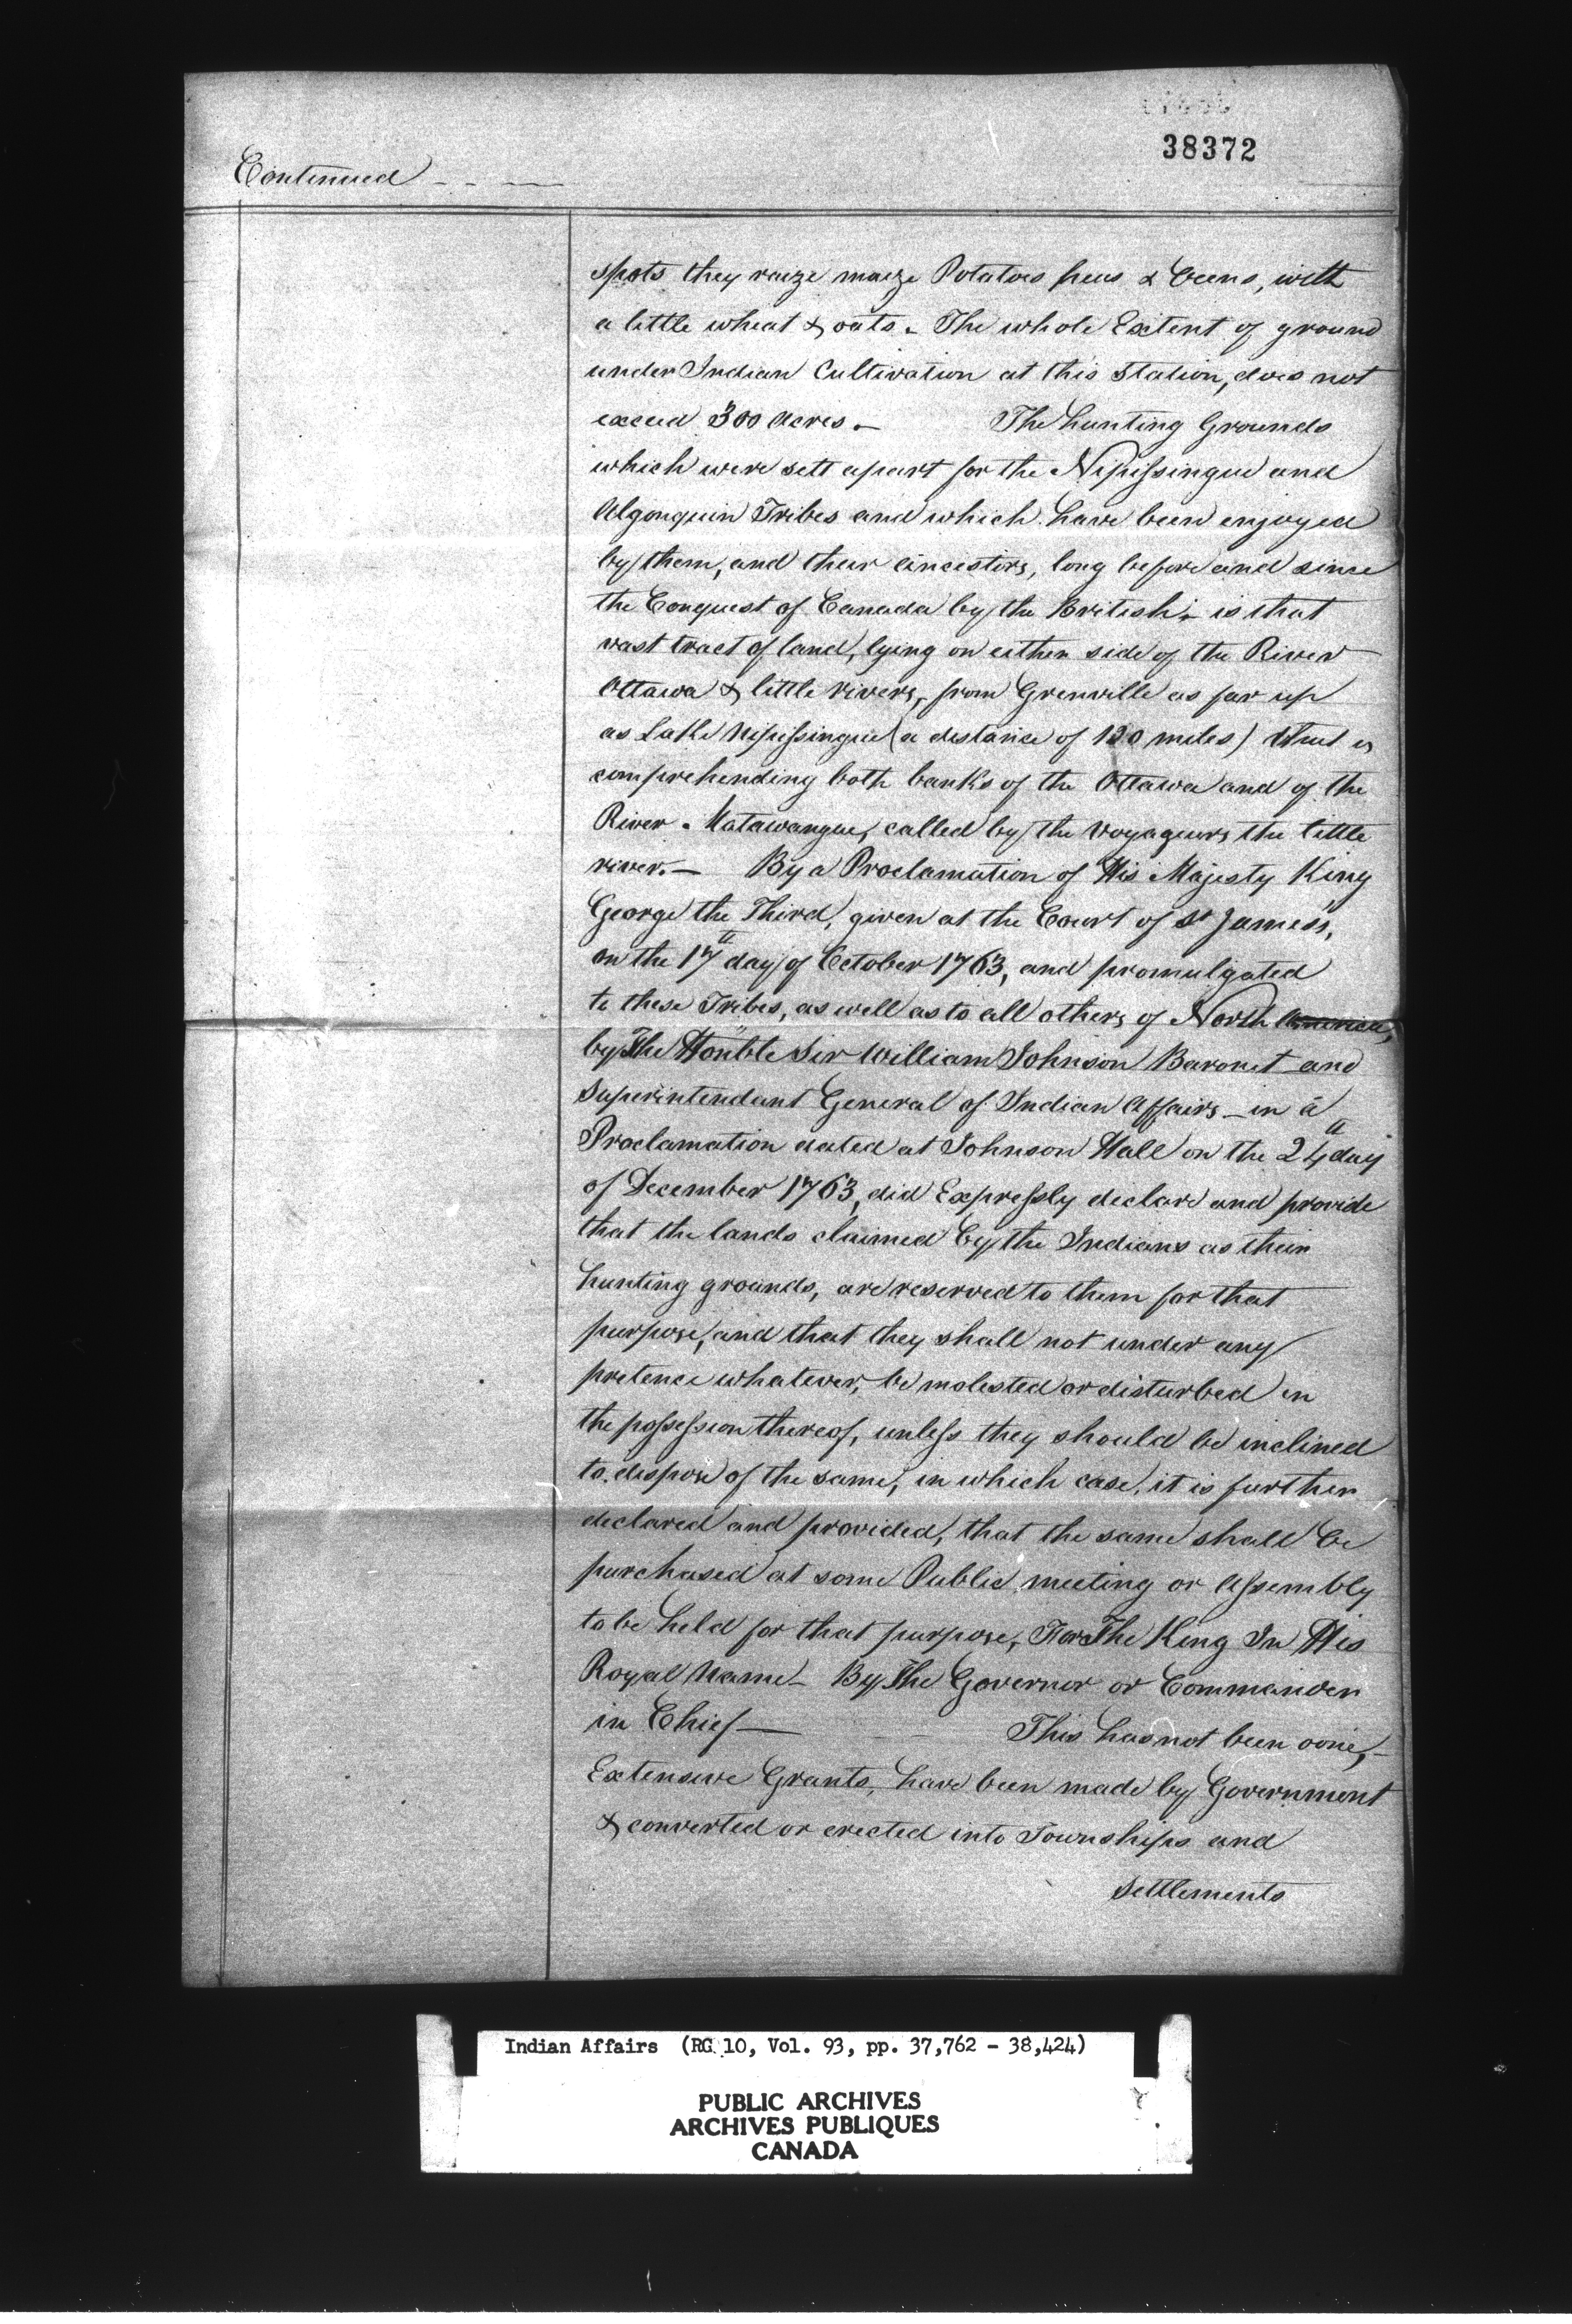 38372
Continued - - —
spots they raize maize Potatoes peas & beens, with
a little wheat & oats. The whole Extent of ground
under Indian Cultivation at this Station, does not
exceed 300 Acres. — The hunting Grounds
which were sett apart for the Nipissingue and
Algonquin Tribes and which have been enjoyed
by them, and their ancestors, long before and since
the Conquest of Canada by the British; is that
vast tract of land, lying on either side of the River
Ottawa & little rivers, from Grenville as far up
as Lake Nipissingue (a distance of miles) that is
comprehending both banks of the Ottawa and of the
River Matawangue, called by the Voyageurs the little
river. — By a Proclamation of His Majesty King
George the Third, given at the Court of St James's,
on the 17th day of October 1763, and promulgated
to these Tribes, as well as to all others of North America,
by The Honble Sir William Johnson Baronet and
Superintendant General of Indian Affairs - in a
Proclamation dated at Johnson Hall on the 24th day
of December 1763, did Expressly declare and provide
that the lands claimed by the Indians as their
hunting grounds, are reserved to them for that
purpose, and that they shall not under any
pretence whatever, be molested or disturbed in
the possession thereof, unless they should be inclined
to dispose of the same, in which case, it is further
declared and provided, that the same shall be
purchased at some Public meeting or Assembly
to be held for that purpose, For The King In His
Royal Name - By The Governor or Commander
in Chief — This has not been done, -
Extensive Grants, have been made by Government
& converted or erected into Townships and
Settlements
Indian Affairs (RG 10, Vol. 93, pp. 37,762 - 38,424)
PUBLIC ARCHIVES
ARCHIVES PUBLIQUES
CANADA